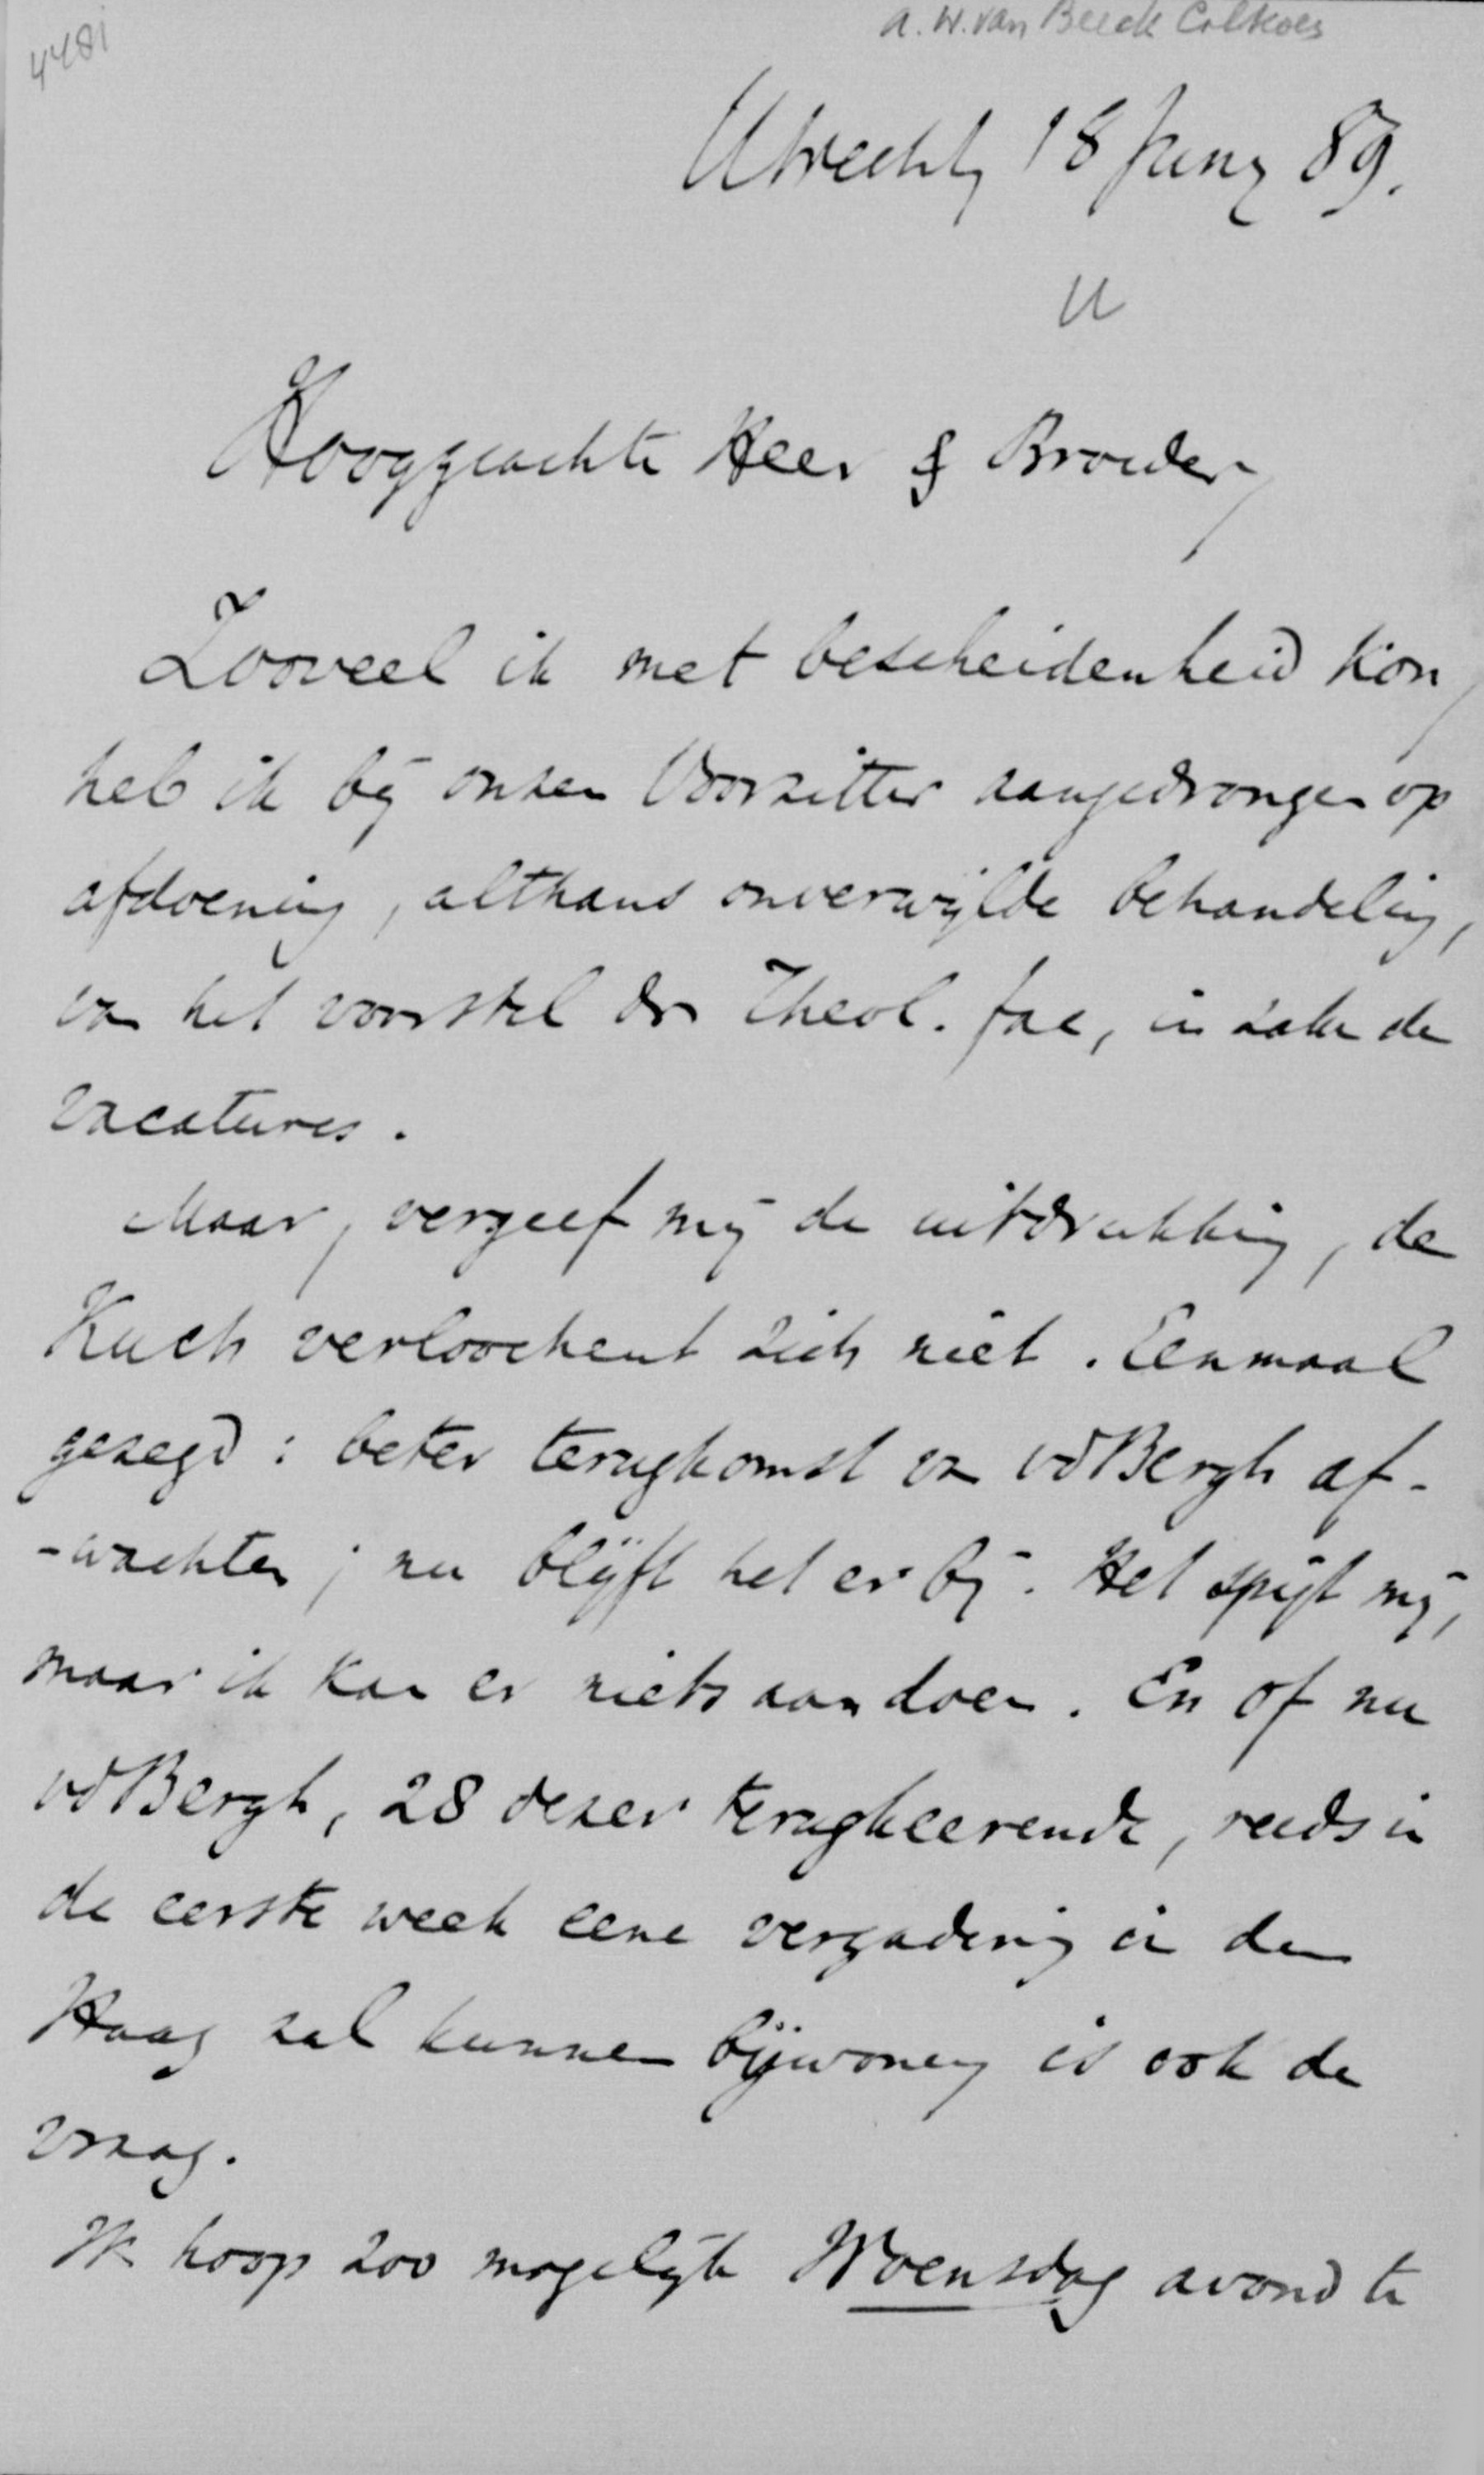 4481
A. W. van Beeck Calkoen
Utrecht, 18 Juny 89.
U
Hooggeachte Heer & Broeder,
Zooveel ik met bescheidenheid kon,
heb ik bij onzen Voorzitter aangedrongen op
afdoening, althans onverwijlde behandeling,
van het voorstel der Theol. fac, in zake de
vacatures.
Maar, vergeef mij de uitdrukking, de
verloochent zich niet. Eenmaal
gezegd: beter terugkomst van vdBergh af-
-wachten; nu blijft het er bij. Het spijt mij,
maar ik kan er niets aan doen. En of nu
vdBergh, 28 dezer terugkeerende, reeds in
de eerste week eene vergadering in den
Haag zal kunnen bijwonen, is ook de
vraag.
Ik hoop zoo mogelijk Woensdag avond te